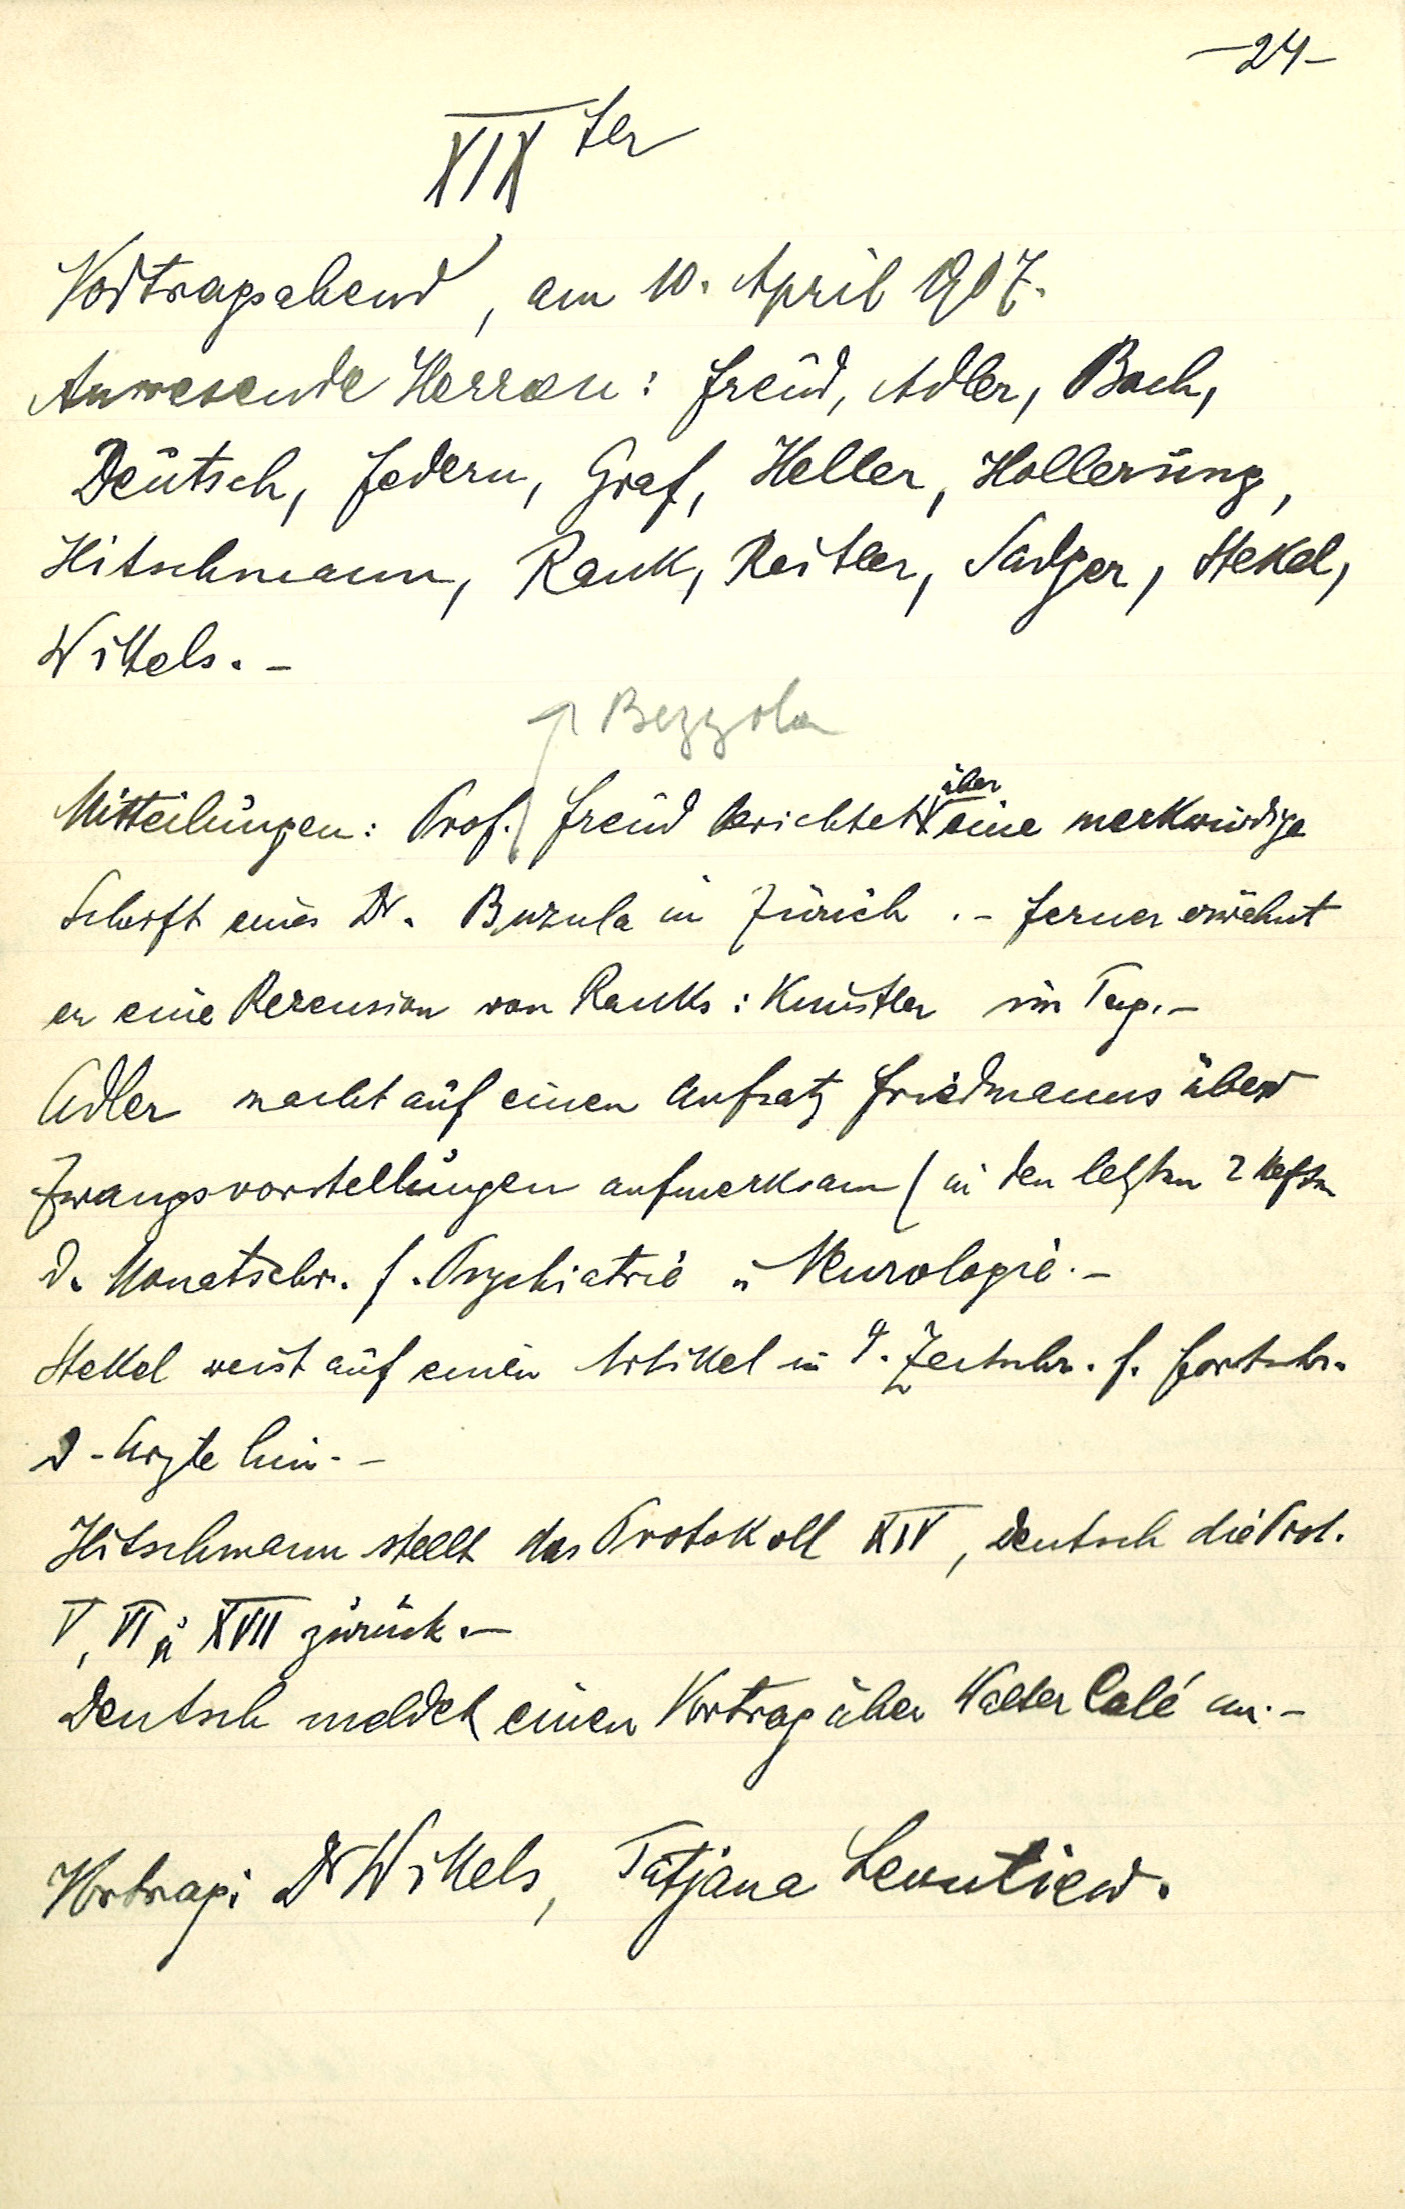 -24-
XIXter
Vortragsabend, am 10. April 1907.
Anwesende Herren: Freud, Adler, Bach,
Deutsch, Federn, Graf, Heller, Hollerung,
Hitschmann, Rank, Reitler, Sadger, Stekel,
Wittels. -
Bezzola
Mitteilungen: Prof. Freud berichtet über eine merkwürdige
Schrift eines Dr. Buzula in Zürich. - Ferner erwähnt
er eine Rezension von Ranks: Künstler im Tag. -
Adler macht auf einen Aufsatz Friedmanns über
Zwangsvorstellungen aufmerksam (in den letzten 2 Heften
d. Monatschr. f. Psychiatrie u Neurologie. -
Stekel weist auf einen Artikel in d. Zeitschr. f. Fortschr.
d. Ärzte hin. -
Hitschmann stellt das Protokoll XIV, Deutsch die Prot.
V, VI u XVII zurück. -
Deutsch meldet einen Vortrag über Walter Calé an. -
Vortrag: Dr Wittels, Tatjana Leontiew.